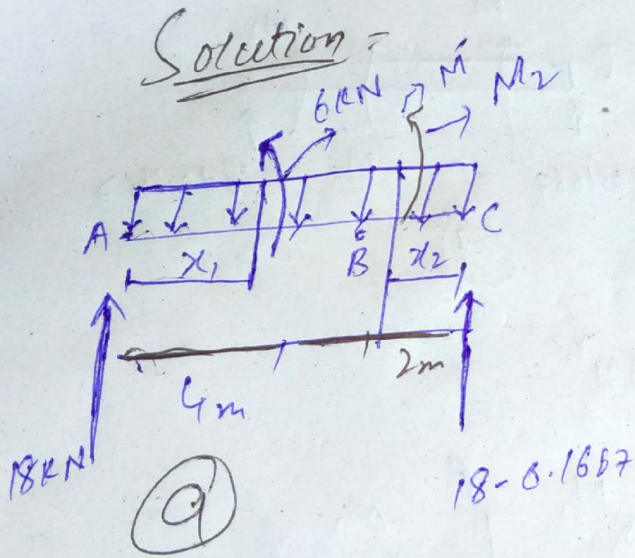 Solution =
6KN M' M2
A C
x1 B x2
4m 2m
18KN 18-0.1667
a